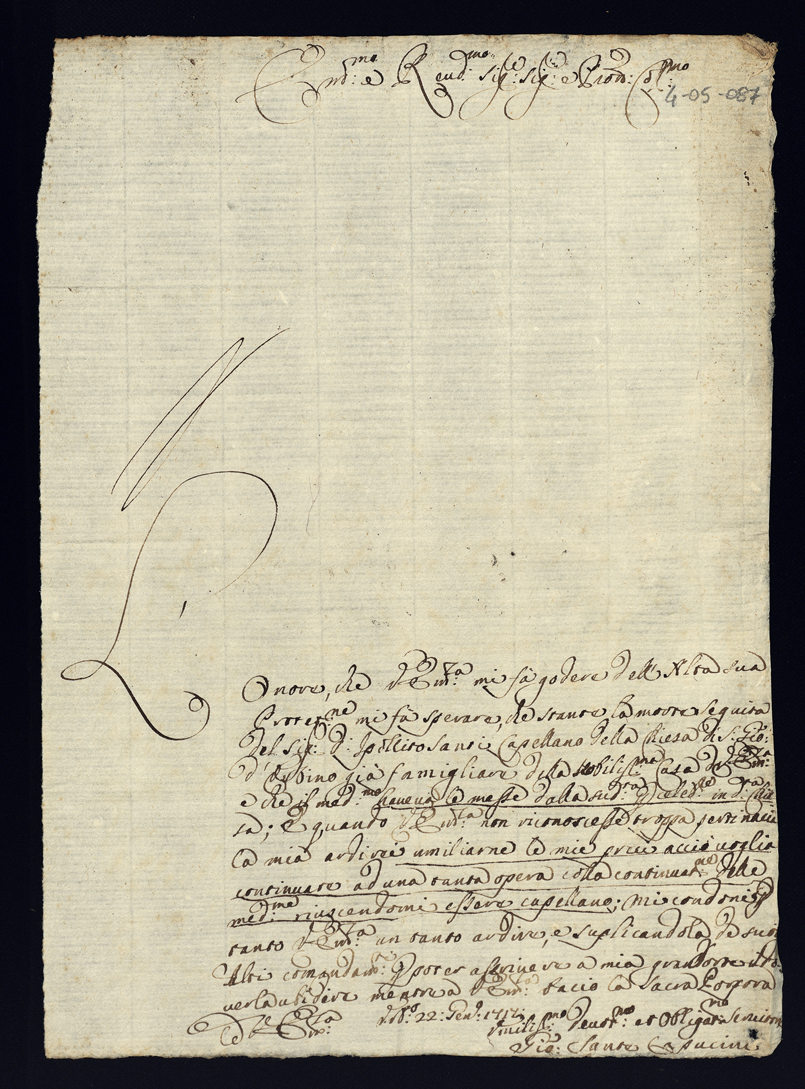 Em.mo e Rev.mo Sig.e Sig.e e Pron: Col.mo
4-05-087
L'
Onore, che V. Em.za mi fà godere dell'Alta sua
Protez.ne mi fà sperare, che stante la morte seguita
del Sig.e D. Ipolito Santi Capellano della Chiesa di S. Gio:
d'Urbino già famigliare della Nobiliss.ma Casa di V. Em.za
e che il med.mo haveva le messe dalla sud.ta celeb.re in d.ta Chie
sa; E quando V. Em.za non riconoscesse troppa pertinacia
la mia ardirei umiliarne le mie preci acciò voglia
continuare ad una tanta opera colla continuat.ne delle
med.me riuscendomi essere capellano; mi condoni p
tanto V. Em.za un tanto ardire, e suplicandola de suoi
Alti comandam.ti p poter ascrivere a mia gran sorte il
verla ubidire mentre a V. Em.za bacio la Sacra Porpora
D V. Em.za Urb.o 22: Gen.o 1717: Umiliss.mo Devot.mo et Obligat.mo
Gio: Sante Capucini